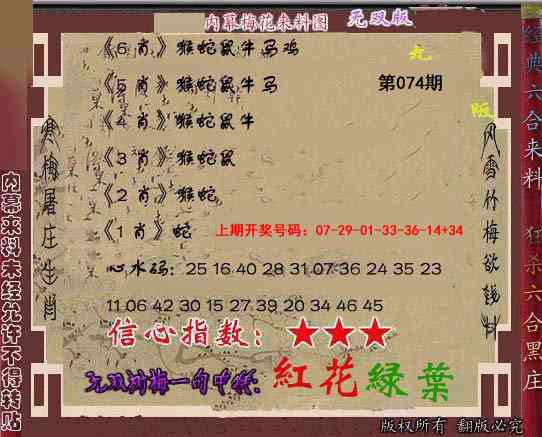 内幕梅花来料图 无双版
《6肖》猴蛇鼠牛马鸡
《5肖》猴蛇鼠牛马 第074期
《4肖》猴蛇鼠牛
《3肖》猴蛇鼠
《2肖》猴蛇
《1肖》蛇 上期开奖号码：07-29-01-33-36-14+34
心水码：25 16 40 28 31 07 36 24 35 23
11 06 42 30 15 27 39 20 34 46 45
信心指数：★★★
无双 梅一句中特：紅花緑葉
版权所有 翻版必究
内幕来料未经允许不得转贴
寒梅屠庄生肖
风雪竹梅欲钱料
经典六合来料 狂杀六合黑庄
版